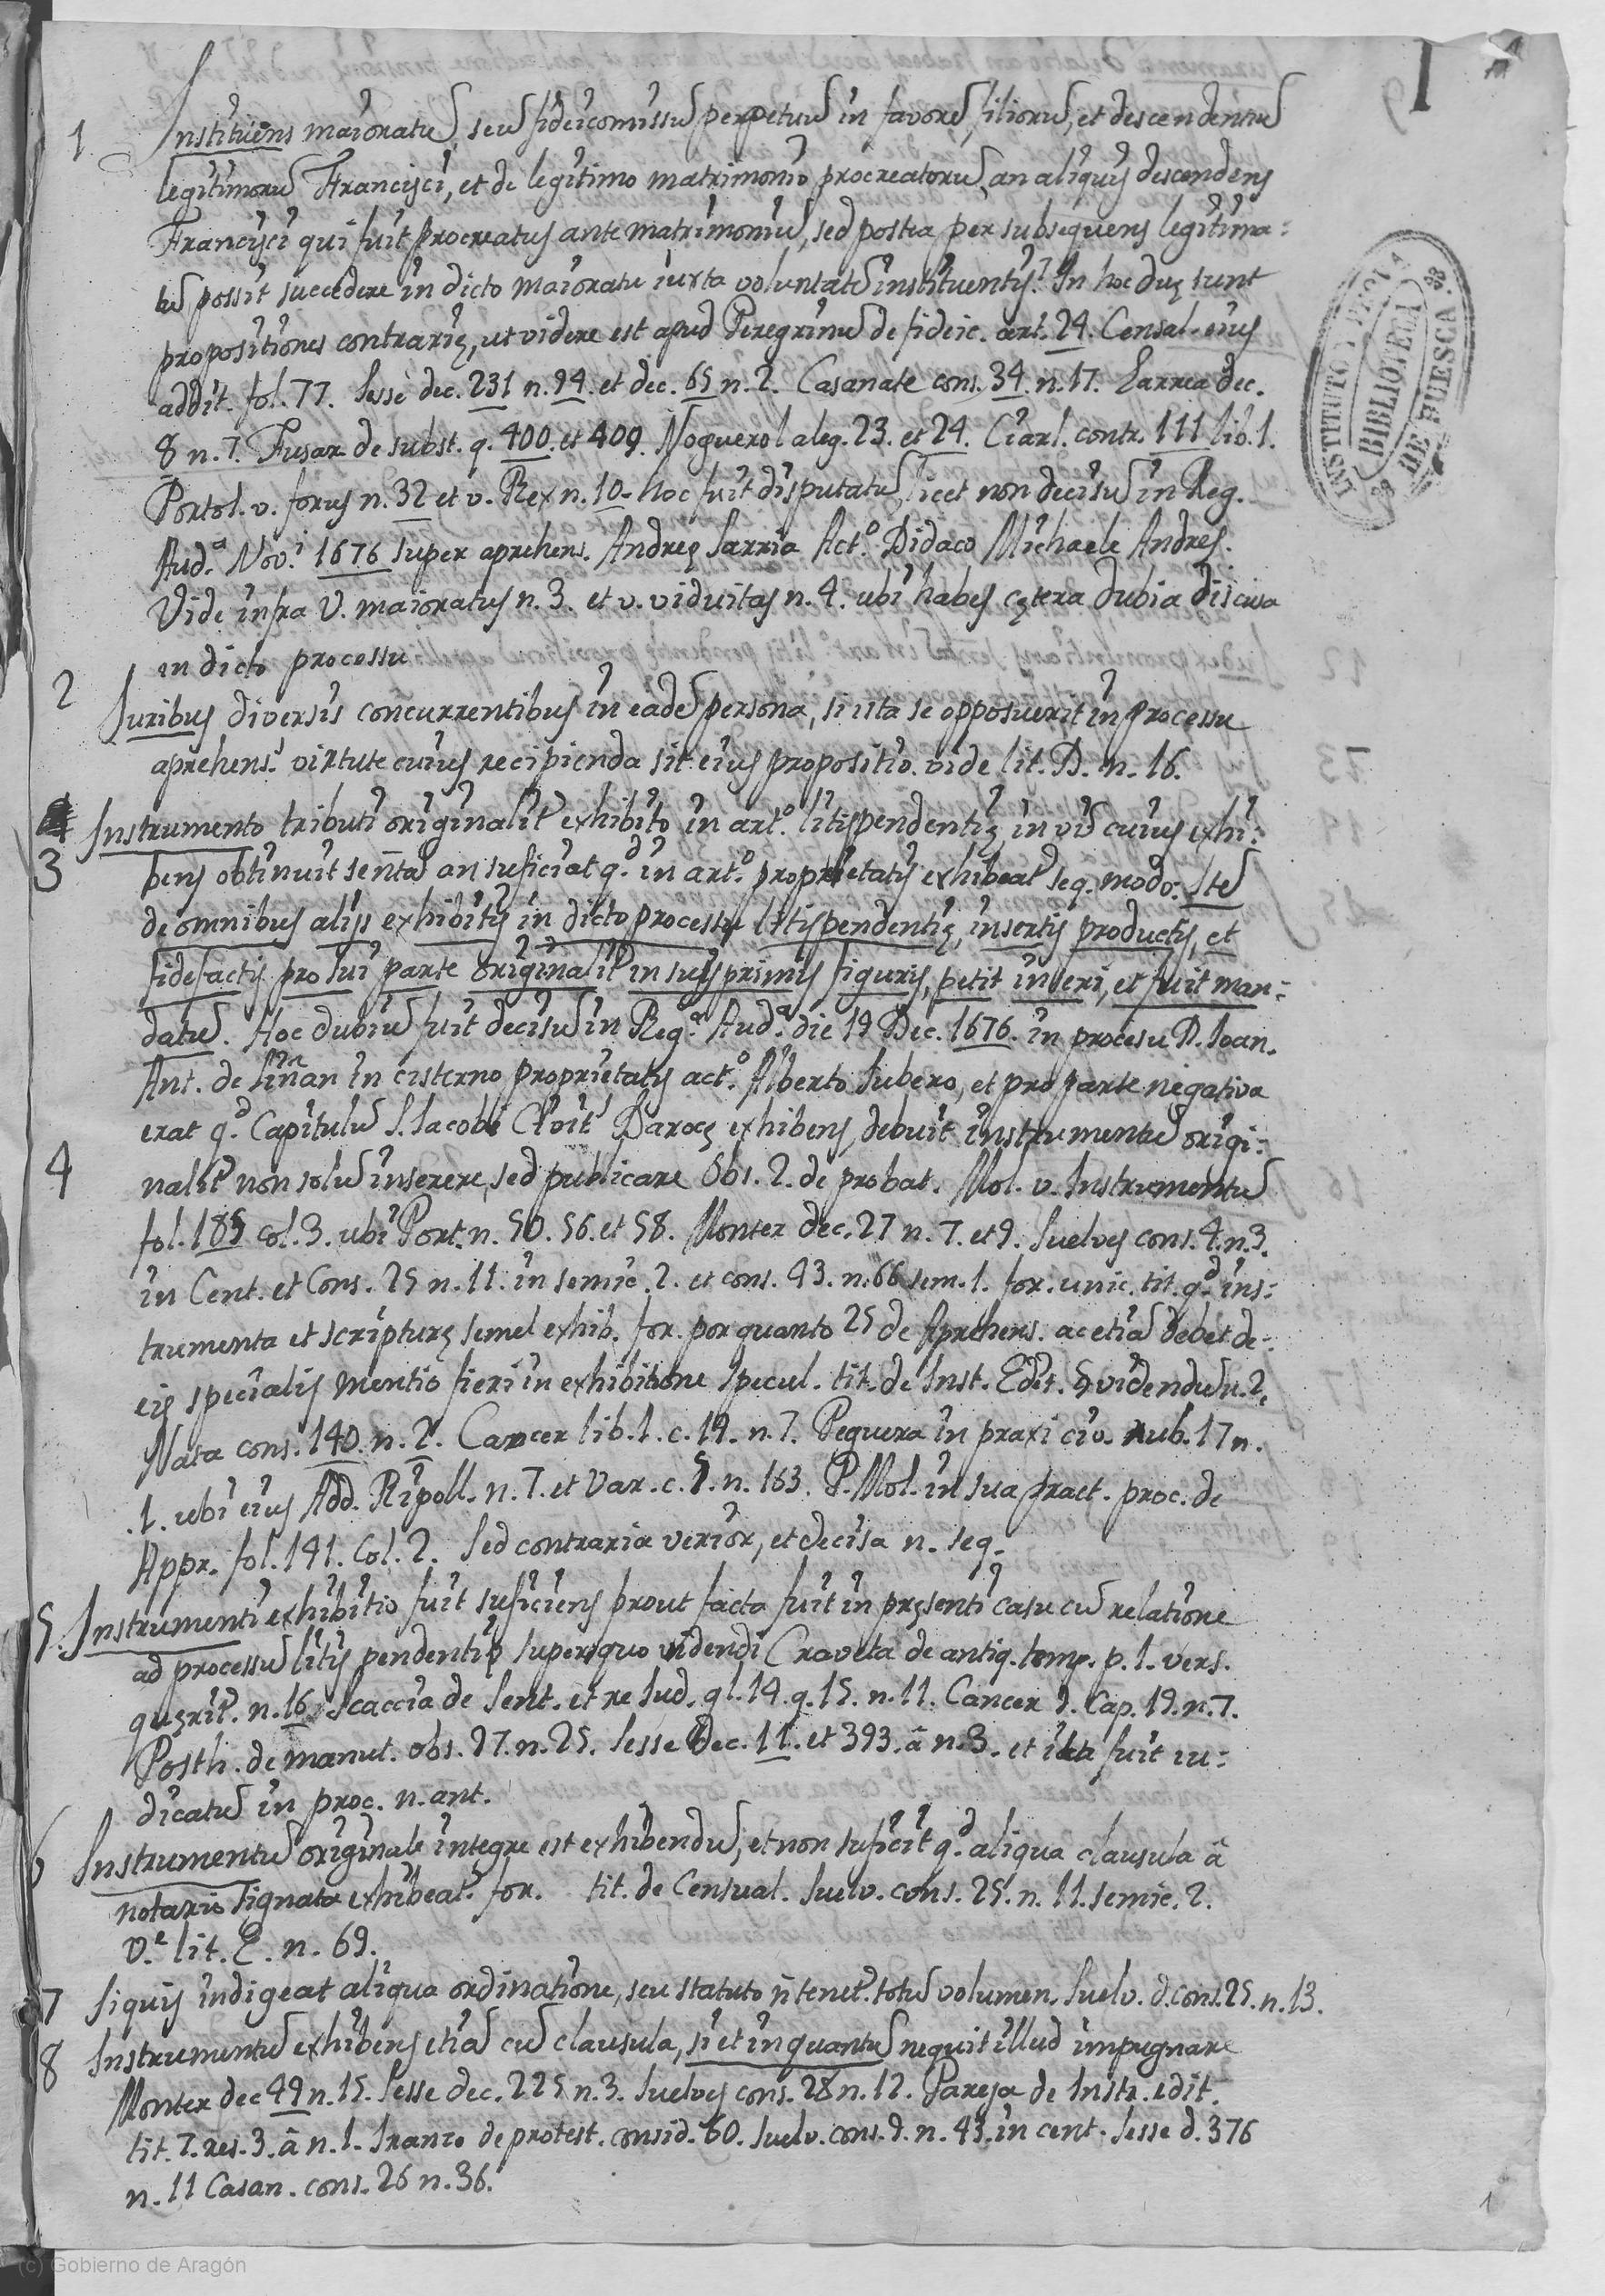 I
1 Instituens maioratũ, seu fideicomissũ perpetuũ in favorẽ filiorũ, et descendentiũ
legitimorũ Francisci, et de legitimo matrimonio procreatorũ, an aliquis descendens
Francisci qui fuit procreatus ante matrimoniũ, sed postea per subsequens legitima-
tũ possit succedere in dicto maioratu iuxta voluntatẽ instituentis? In hoc duę sunt
propositiones contrarię, ut videre est apud Peregrinũ de fideic. art. 24. Censal. eius
addit. fol. 77. Sessè dec. 231 n. 94. et dec. 65 n. 2. Casanate cons. 34. n. 17. Larrea dec.
8 n. 7. Fusar. de subst. q. 400. et 409. Noguerol aleg. 23. et 24. Ciarl. contr. 111 lib. 1.
Portol. v. forus n. 32 et v. Rex n. 10. hoc fuit disputatũ, licet non decisũ in Reg.
Aud.ª Nov.i 1676 super aprehens. Andreę Sarria Act.º Didaco Michaele Andres.
Vide infra V. maioratus n. 3. et v. viduitas n. 4. ubi habes cętera dubia discusa
in dicto processu
2 Iuribus diversis concurrentibus in eadẽ persona, si ista se opposuerit in processu
aprehens.s virtute cuius recipienda sit eius propositio. vide lit. D. n. 16.
3 Instrumento tributi originalit̃ exhibito in art.º litispendentię in vim cuius exhi-
bens obtinuit sentã an suficiat q.d in art.º proprietatis exhibeat̃ seq. modo: Itẽ
de omnibus alijs exhibitis in dicto processu litispendentię, insertis productis, et
fidefactis pro sui parte originalit̃ in suis primis figuris, petit inseri, et fuit man-
datũ. Hoc dubiũ fuit decisũ in Reg.ª Aud.ª die 19 Dec. 1676. in procesu D. Ioan.
Ant. de Liñan in cisterno proprietatis act.º Alberto Subero, et pro parte negativa
erat q.d Capitulũ S. Iacobi Civit.s Darocę exhibens, debuit instrumentũ origi-
4 nalit̃ non solũ inserere, sed publicare Obs. 2. de probat. Mol. v. Instrumentũ
fol. 185 col. 3. ubi Port. n. 50. 56. et 58. Monter dec. 27 n. 7. et 9. Suelves cons. 4. n. 3.
in Cent. et Cons. 25 n. 11. in semic. 2. et cons. 93. n. 66 sem. 1. for. unic. tit. q.d ins-
trumenta et scripturę semel exhib. for. por quanto 25 de Aprehens. ac etiã debet de
eis specialis mentio fieri in exhibitione Specul. tit. de Inst. Edit. § videndũ n. 2.
Nata cons. 140. n. 2. Cancer lib. 1. c. 19. n. 7. Peguera in praxi civ. rub. 17 n.
1. ubi eius Add. Ripoll. n. 7. et Var. c. 5. n. 163. P. Mol. in sua pract. proc. de
Appr. fol. 141. Col. 2. Sed contraria verior, et decisa n. seq.
5. Instrumenti exhibitio fuit suficiens prout facta fuit in pręsenti casu cũ relatione
ad processũ litis pendentię super quo videndi Craveta de antiq. temp. p. 1. vers.
quęrit̃. n. 16. Scaccia de Sent. et re Iud. gl. 14. q. 15. n. 11. Cancer d. Cap. 19. n. 7.
Posth. de manut. obs. 27. n. 25. Sesse dec. 11. et 393. â n. 3. et ita fuit iu-
dicatũ in proc. n. ant.
6 Instrumentũ originale integre est exhibendũ, et non suficit q.d aliqua clausula â
notario signata exhibeat̃. for. tit. de Censual. Suelv. cons. 25. n. 11. semic. 2.
V.e lit. E. n. 69.
7 Siquis indigeat aliqua ordinatione, seu statuto ñ tenet̃ totũ volumen. Suelv. d. cons. 25. n. 13.
8 Instrumentũ exhibens etiã cũ clausula, si et in quantũ nequit illud impugnare
Monter dec 49 n. 15. Sesse dec. 225 n. 3. Suelves cons. 28 n. 12. Pareja de Instr. edit.
tit. 7. res. 3. â n. 1. Iranzo de protest. consid. 60. Suelv. cons. 9. n. 43. in cent. Sesse d. 376
n. 11 Casan. cons. 26 n. 36.
INSTITUTO Y PROVAL
BIBLIOTECA
DE HUESCA
1
(c) Gobierno de Aragón